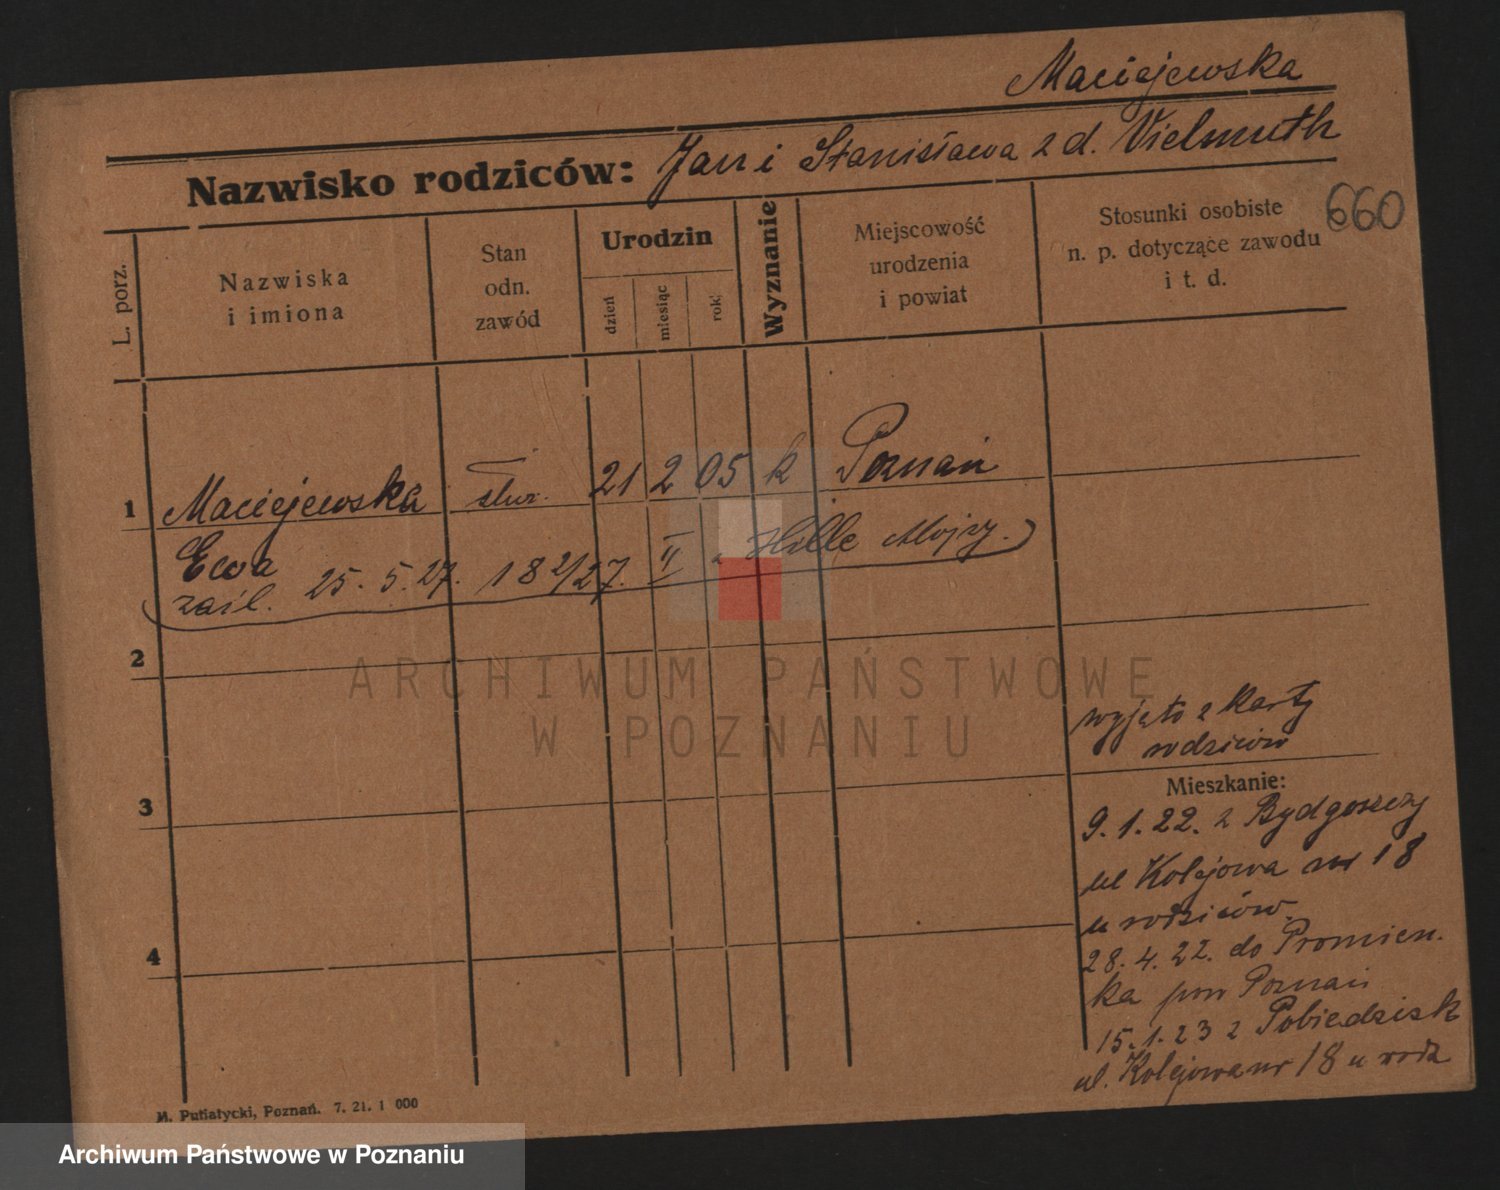 Maciejewska
Nazwisko rodziców: Jan i Stanisława z d. Vielmuth
660
L. porz.
Nazwiska
i imiona
Stan
odn.
zawód
Urodzin
dzień
miesiąc
rok
Wyznanie
Miejscowość
urodzenia
i powiat
Stosunki osobiste
n. p. dotyczące zawodu
i t. d.
1 Maciejewska służ. 21 2 05 k Poznań
Ewa
zaśl. 25.5.27. 182/27. II Hille Mojży.
2
wyjęto z karty
rodziców
Mieszkanie:
3
9.1.22. z Bydgoszczy
ul Kolejowa nr 18
u rodziców.
4
28.4.22. do Promien.
ka pow Poznań
15.1.23 z Pobiedzisk
ul. Kolejowa nr 18 u rodz
M. Putiatycki, Poznań. 7. 21. 1 000
ARCHIWUM PAŃSTWOWE
W POZNANIU
Archiwum Państwowe w Poznaniu